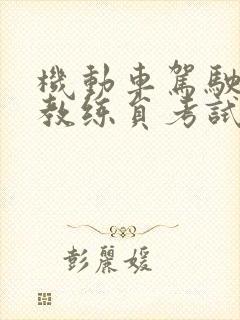 機動車駕駛
教练員考試
彭麗媛